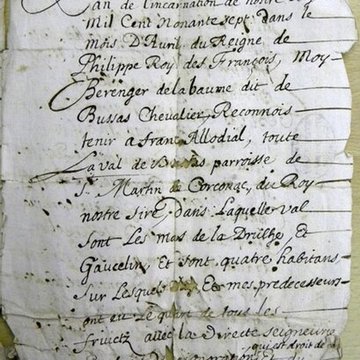 L'an de l'incarnation de nostre
mil Cent Nonante sept dans le
mois D'Avril du Reigne de
Philippe Roy des François, Moy
Berenger de la baume dit de
Bussas Chevalier, Reconnois
tenir a franc Allodial, toute
La val de Bussas parroisse de
St Martin de Corconac, du Roy
nostre sire, dans Laquelle val
sont Les mas de la Drulhe Et
Gaucelin Et sont quatre habitans
sur Lesquels Et mes predecesseurs
ont eu Le quart de tous les
fruictz avec la Directe seigneurie
qui est droit de
Et du